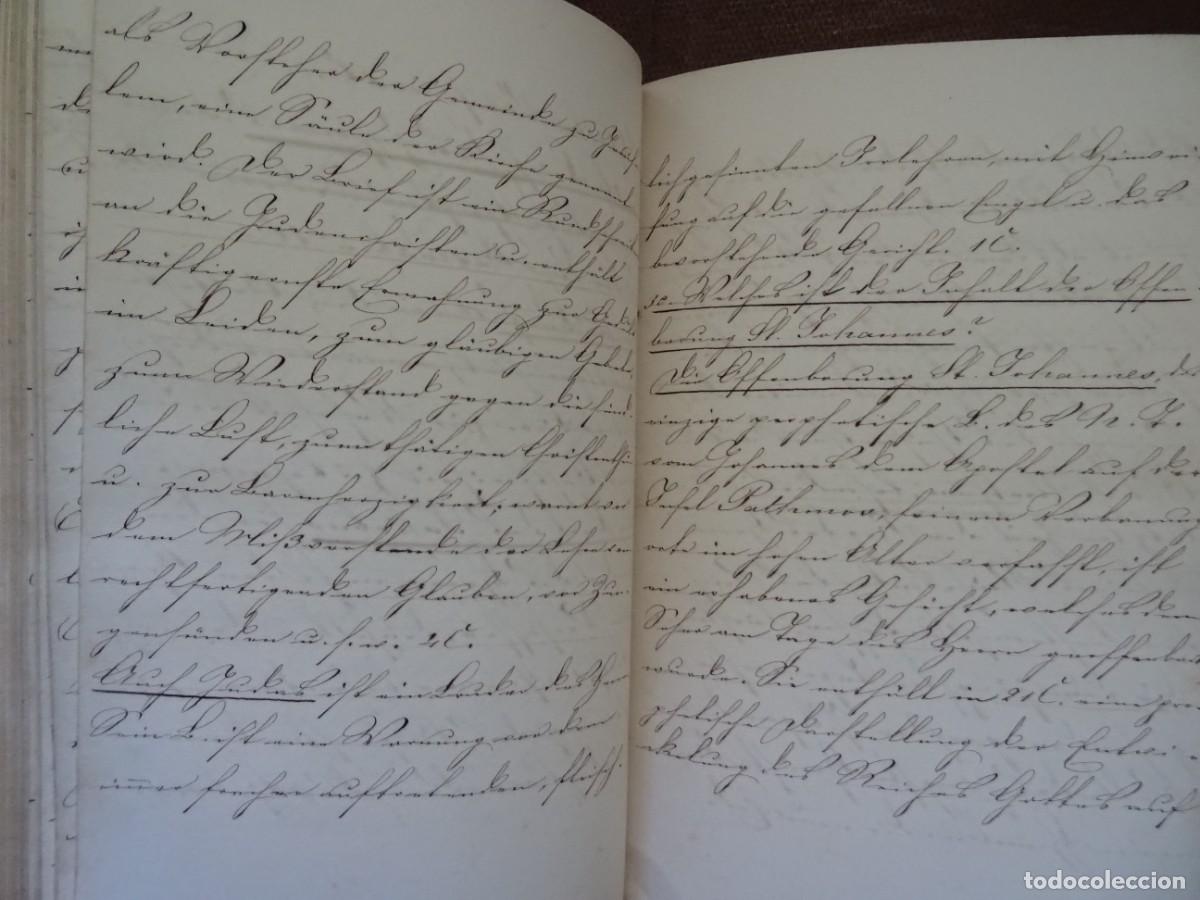 als Vorsteher der Gemeinde zu Jerusa-
lem, eine Säule der Kirche genannt
wird. Der Brief ist ein Rundschreiben
an die Judenchristen u. enthält
kräftig ernste Ermahnung zur Geduld
im Leiden, zum gläubigen Gebete,
zum Wiederstand gegen die sünd-
liche Lust, zum thätigen Christenthum
u. zur Barmherzigkeit; warnt vor
dem Mißverstande der Lehre vom
rechtfertigenden Glauben, vor Zun-
gensünden u. s. w. 4 C.
Auch Judas ist ein Bruder des Herrn
Sein B. ist eine Warnung vor den
immer frecher auftretenden, fleisch-
lichgesinnten Irrlehren, mit Hinwei-
sung auf die gefallnen Engel u. das
bevorstehende Gericht. 1 C.
10. Welches ist der Inhalt der Offen-
barung St. Johannes?
Die Offenbarung St. Johannes, das
einzige prophetische B. des N. T.
vom Johannes dem Apostel auf der
Insel Pathmos, seinem Verbannungs
orte im hohen Alter verfasst, ist
ein erhabenes Gesicht, welches dem
Seher am Tage des Herrn geoffenbart
wurde. Sie enthält in 21 C. eine pro-
phetische Darstellung der Entwi-
ckelung des Reiches Gottes auf
todocoleccion